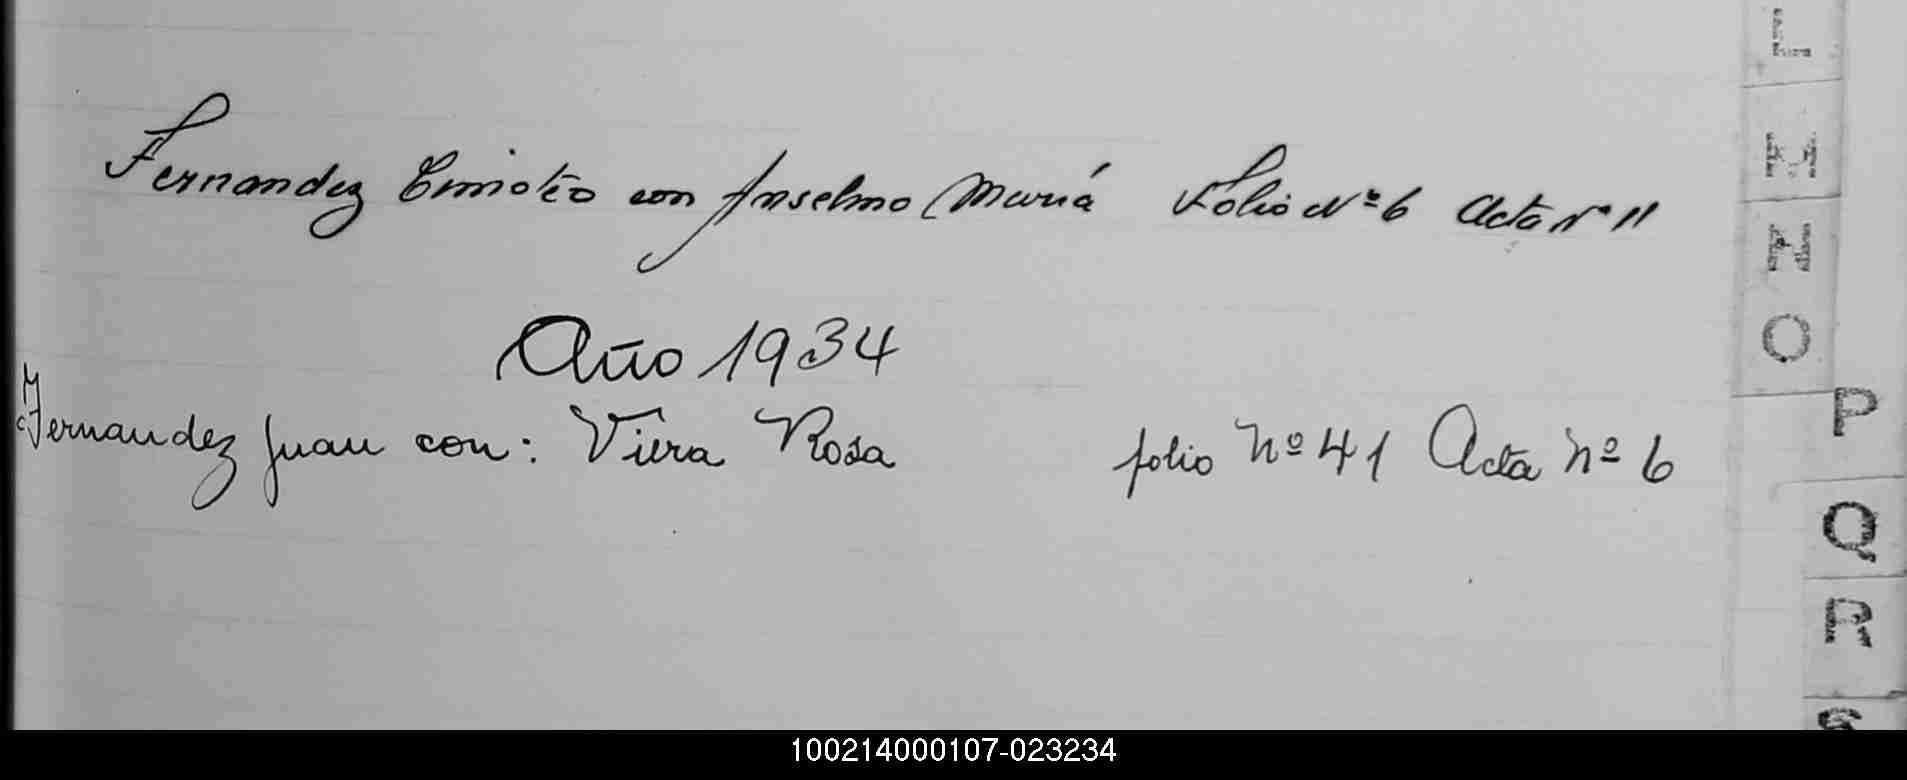 Fernandez Timoteo con Anselmo María Folio Nº 6 Acta Nº 11
Año 1934
Fernandez Juan con: Viera Rosa folio Nº 41 Acta Nº 6
O
P
Q
R
S
100214000107-023234